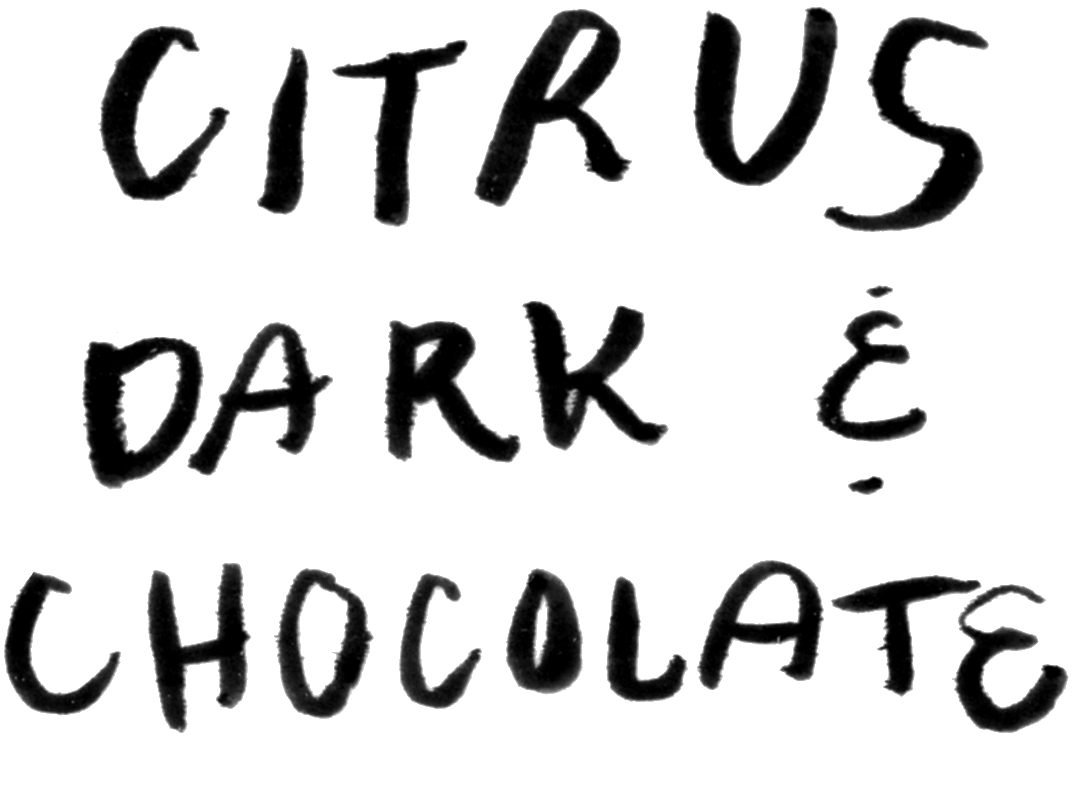 CITRUS
DARK &
CHOCOLATE